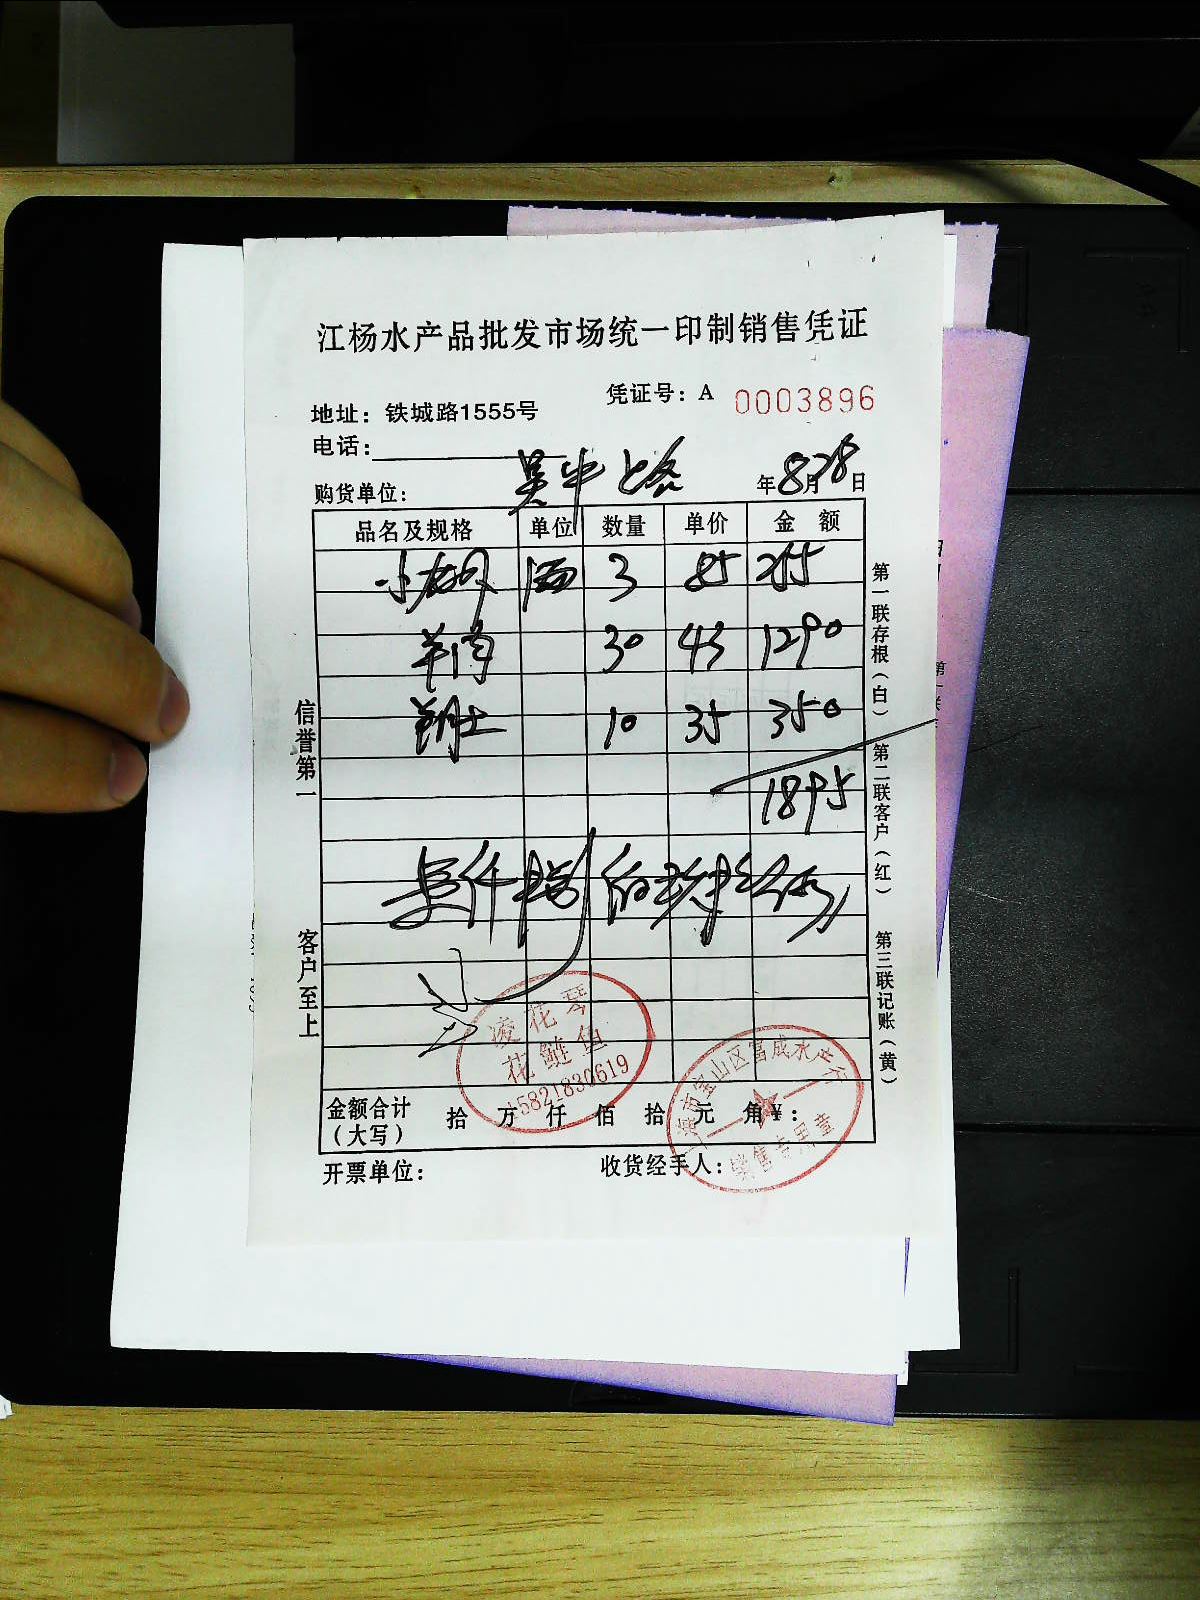 江杨水产品批发市场统一印制销售凭证
凭证号：A 0003896
地址：铁城路1555号
电话：
购货单位： 吴中路 年8月28日
品名及规格 单位 数量 单价 金额
小龙虾 3 85 255
羊肉 30 43 1290
10 35 350
1895
信誉第一
客户至上
第一联存根（白）
第二联客户（红）
第三联记账（黄）
凌花琴
花鲢鱼
15821830619
上海市宝山区富成水产行
销售专用章
金额合计（大写） 拾 万 仟 佰 拾 元 角 ¥：
开票单位： 收货经手人：